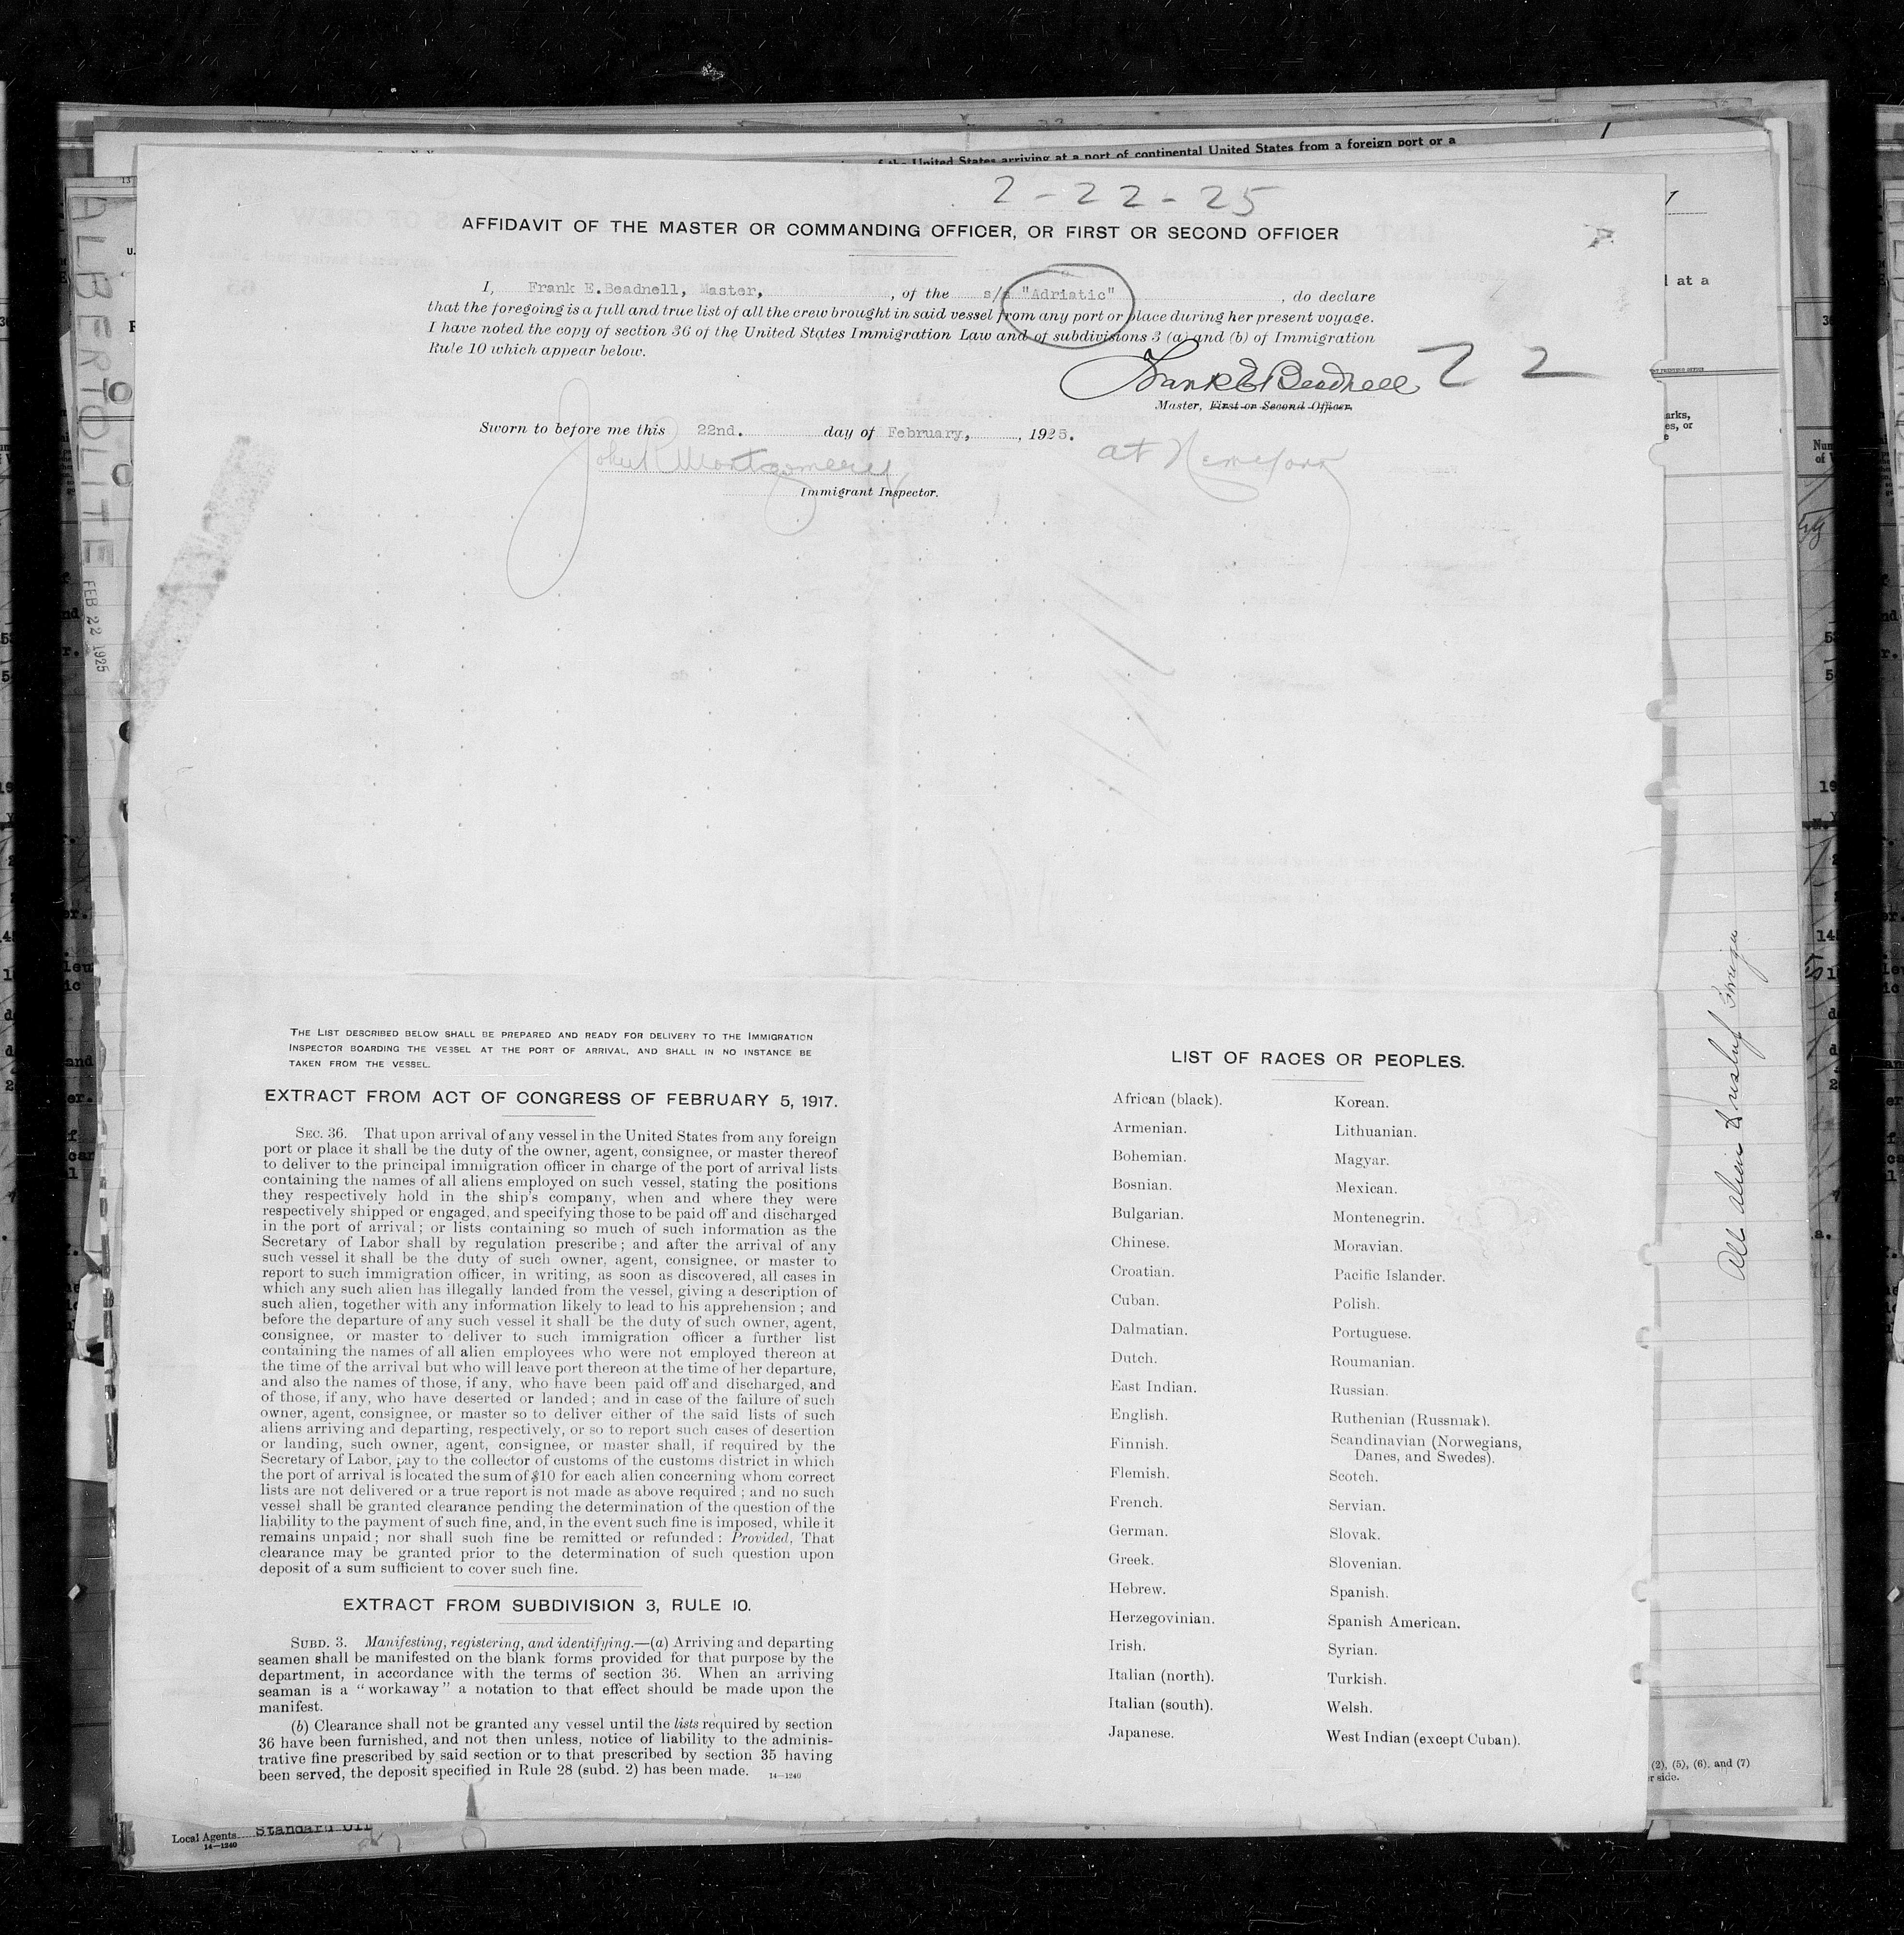 of the United States arriving at a port of continental United States from a foreign port or a
2-22-25
AFFIDAVIT OF THE MASTER OR COMMANDING OFFICER, OR FIRST OR SECOND OFFICER
I, Frank E.Beadnell, Master, , of the s/s "Adriatic" , do declare
that the foregoing is a full and true list of all the crew brought in said vessel from any port or place during her present voyage.
I have noted the copy of section 36 of the United States Immigration Law and of subdivisions 3 (a) and (b) of Immigration
Rule 10 which appear below.
Frank E Beadnell 22
Master, First or Second Officer.
Sworn to before me this 22nd. day of February, , 1925. at New York
John R Montgomery
Immigrant Inspector.
ALBERTOLITE
FEB 22 1925
THE LIST DESCRIBED BELOW SHALL BE PREPARED AND READY FOR DELIVERY TO THE IMMIGRATION
INSPECTOR BOARDING THE VESSEL AT THE PORT OF ARRIVAL, AND SHALL IN NO INSTANCE BE
TAKEN FROM THE VESSEL.
EXTRACT FROM ACT OF CONGRESS OF FEBRUARY 5, 1917.
SEC. 36. That upon arrival of any vessel in the United States from any foreign
port or place it shall be the duty of the owner, agent, consignee, or master thereof
to deliver to the principal immigration officer in charge of the port of arrival lists
containing the names of all aliens employed on such vessel, stating the positions
they respectively hold in the ship's company, when and where they were
respectively shipped or engaged, and specifying those to be paid off and discharged
in the port of arrival; or lists containing so much of such information as the
Secretary of Labor shall by regulation prescribe; and after the arrival of any
such vessel it shall be the duty of such owner, agent, consignee, or master to
report to such immigration officer, in writing, as soon as discovered, all cases in
which any such alien has illegally landed from the vessel, giving a description of
such alien, together with any information likely to lead to his apprehension; and
before the departure of any such vessel it shall be the duty of such owner, agent,
consignee, or master to deliver to such immigration officer a further list
containing the names of all alien employees who were not employed thereon at
the time of the arrival but who will leave port thereon at the time of her departure,
and also the names of those, if any, who have been paid off and discharged, and
of those, if any, who have deserted or landed; and in case of the failure of such
owner, agent, consignee, or master so to deliver either of the said lists of such
aliens arriving and departing, respectively, or so to report such cases of desertion
or landing, such owner, agent, consignee, or master shall, if required by the
Secretary of Labor, pay to the collector of customs of the customs district in which
the port of arrival is located the sum of $10 for each alien concerning whom correct
lists are not delivered or a true report is not made as above required; and no such
vessel shall be granted clearance pending the determination of the question of the
liability to the payment of such fine, and, in the event such fine is imposed, while it
remains unpaid; nor shall such fine be remitted or refunded: Provided, That
clearance may be granted prior to the determination of such question upon
deposit of a sum sufficient to cover such fine.
EXTRACT FROM SUBDIVISION 3, RULE 10.
SUBD. 3. Manifesting, registering, and identifying.—(a) Arriving and departing
seamen shall be manifested on the blank forms provided for that purpose by the
department, in accordance with the terms of section 36. When an arriving
seaman is a "workaway" a notation to that effect should be made upon the
manifest.
(b) Clearance shall not be granted any vessel until the lists required by section
36 have been furnished, and not then unless, notice of liability to the adminis-
trative fine prescribed by said section or to that prescribed by section 35 having
been served, the deposit specified in Rule 28 (subd. 2) has been made. 14—1240
LIST OF RACES OR PEOPLES.
African (black).
Armenian.
Bohemian.
Bosnian.
Bulgarian.
Chinese.
Croatian.
Cuban.
Dalmatian.
Dutch.
East Indian.
English.
Finnish.
Flemish.
French.
German.
Greek.
Hebrew.
Herzegovinian.
Irish.
Italian (north).
Italian (south).
Japanese.
Korean.
Lithuanian.
Magyar.
Mexican.
Montenegrin.
Moravian.
Pacific Islander.
Polish.
Portuguese.
Roumanian.
Russian.
Ruthenian (Russniak).
Scandinavian (Norwegians,
Danes, and Swedes).
Scotch.
Servian.
Slovak.
Slovenian.
Spanish.
Spanish American.
Syrian.
Turkish.
Welsh.
West Indian (except Cuban).
(2), (5), (6), and (7)
Local Agents Standard Oil
14—1240